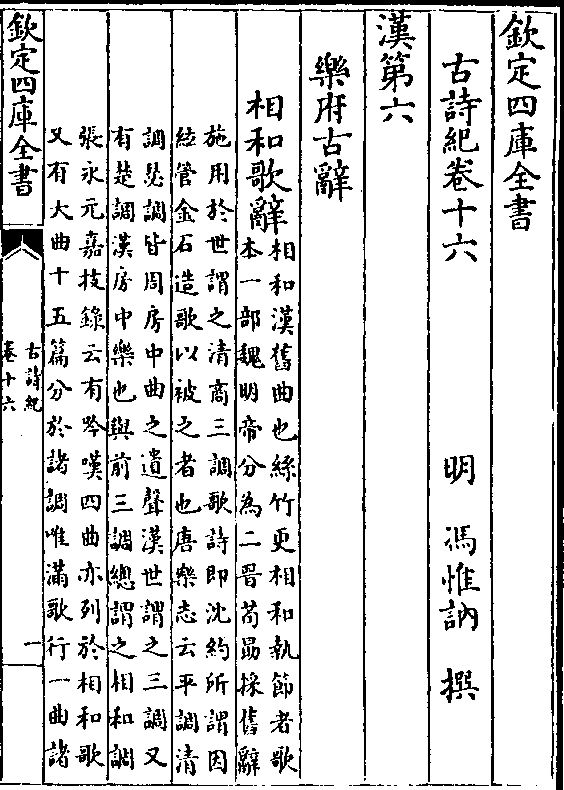 欽定四庫全書
古詩紀卷十六
明 馮惟訥 撰
漢第六
樂府古辭
相和歌辭
相和漢舊曲也絲竹更相和執節者歌
本一部魏明帝分為二晉荀勗採舊辭
施用於世謂之清商三調歌詩即沈約所謂因
絃管金石造歌以被之者也唐樂志云平調清
調瑟調皆周房中曲之遺聲漢世謂之三調又
有楚調漢房中樂也與前三調總謂之相和調
張永元嘉技錄云有吟嘆四曲亦列於相和歌
又有大曲十五篇分於諸調唯滿歌行一曲諸
欽定四庫全書
古詩紀
卷十六
一